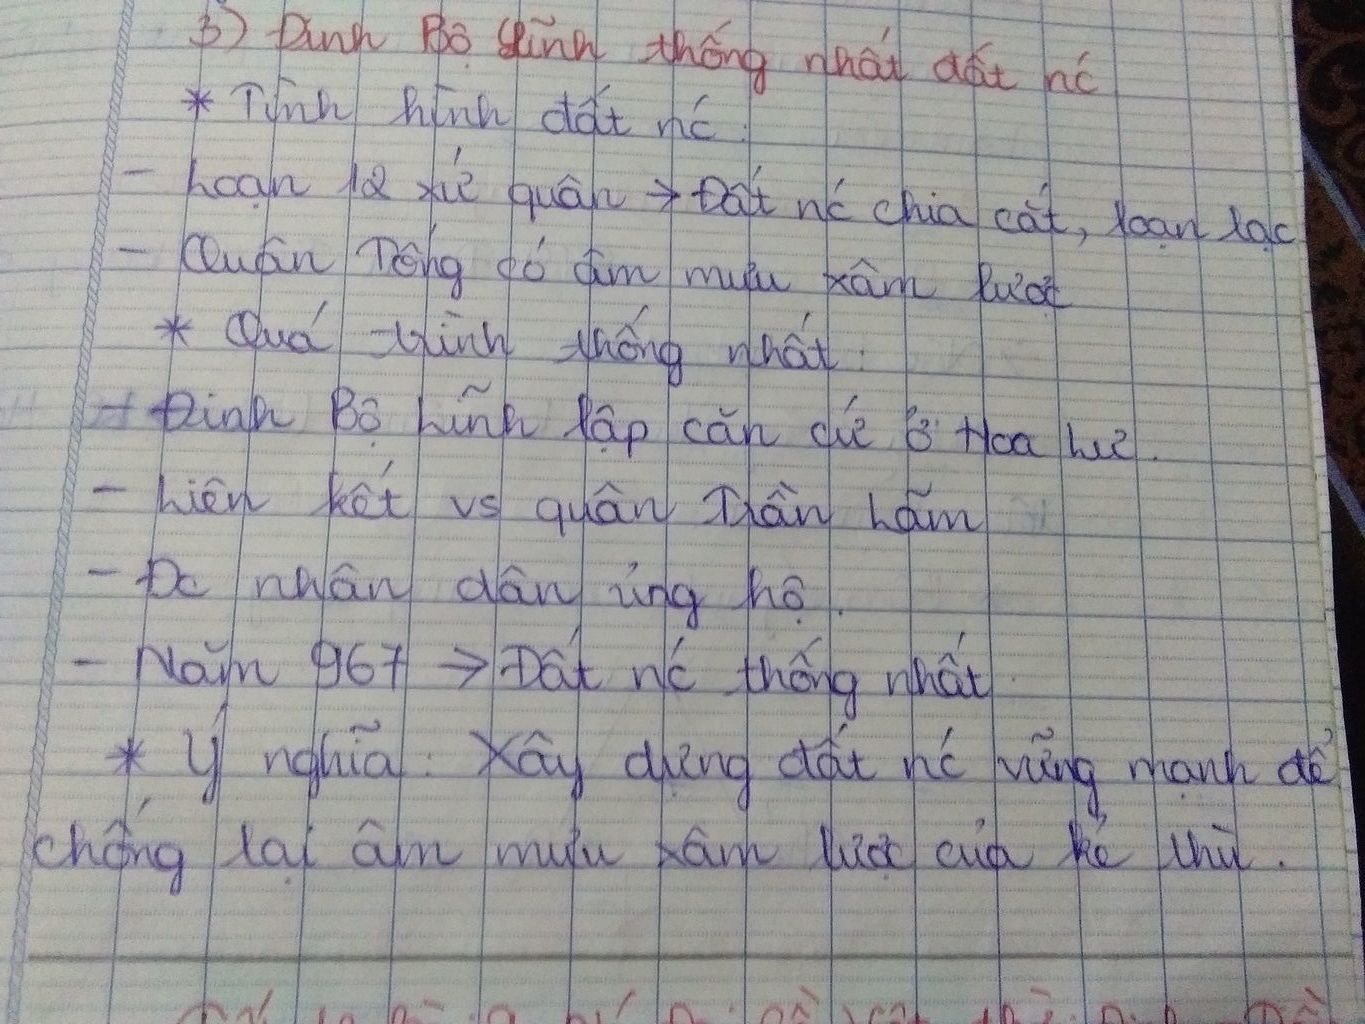 3) Đinh Bộ Lĩnh thống nhất đất nc
* Tình hình đất nc:
- Loạn 12 xứ quân → Đất nc chia cắt, loạn lạc
- Quân Tống có âm mưu xâm lược
* Quá trình thống nhất:
- Đinh Bộ Lĩnh lập căn cứ ở Hoa Lư.
- Liên kết vs quân Trần Lãm
- Đc nhân dân ủng hộ.
- Năm 967 → Đất nc thống nhất.
* Ý nghĩa: Xây dựng đất nc vững mạnh để
chống lại âm mưu xâm lược của kẻ thù.